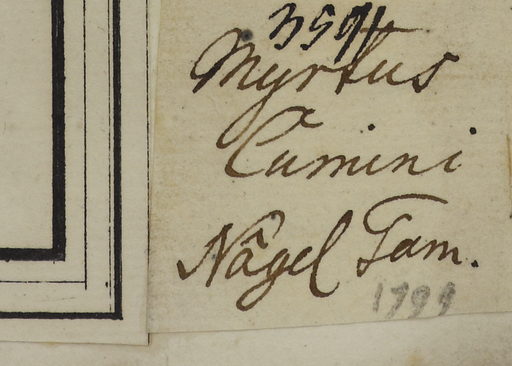 3594
Myrtus
Cumini
Nâgel Tam.
1799